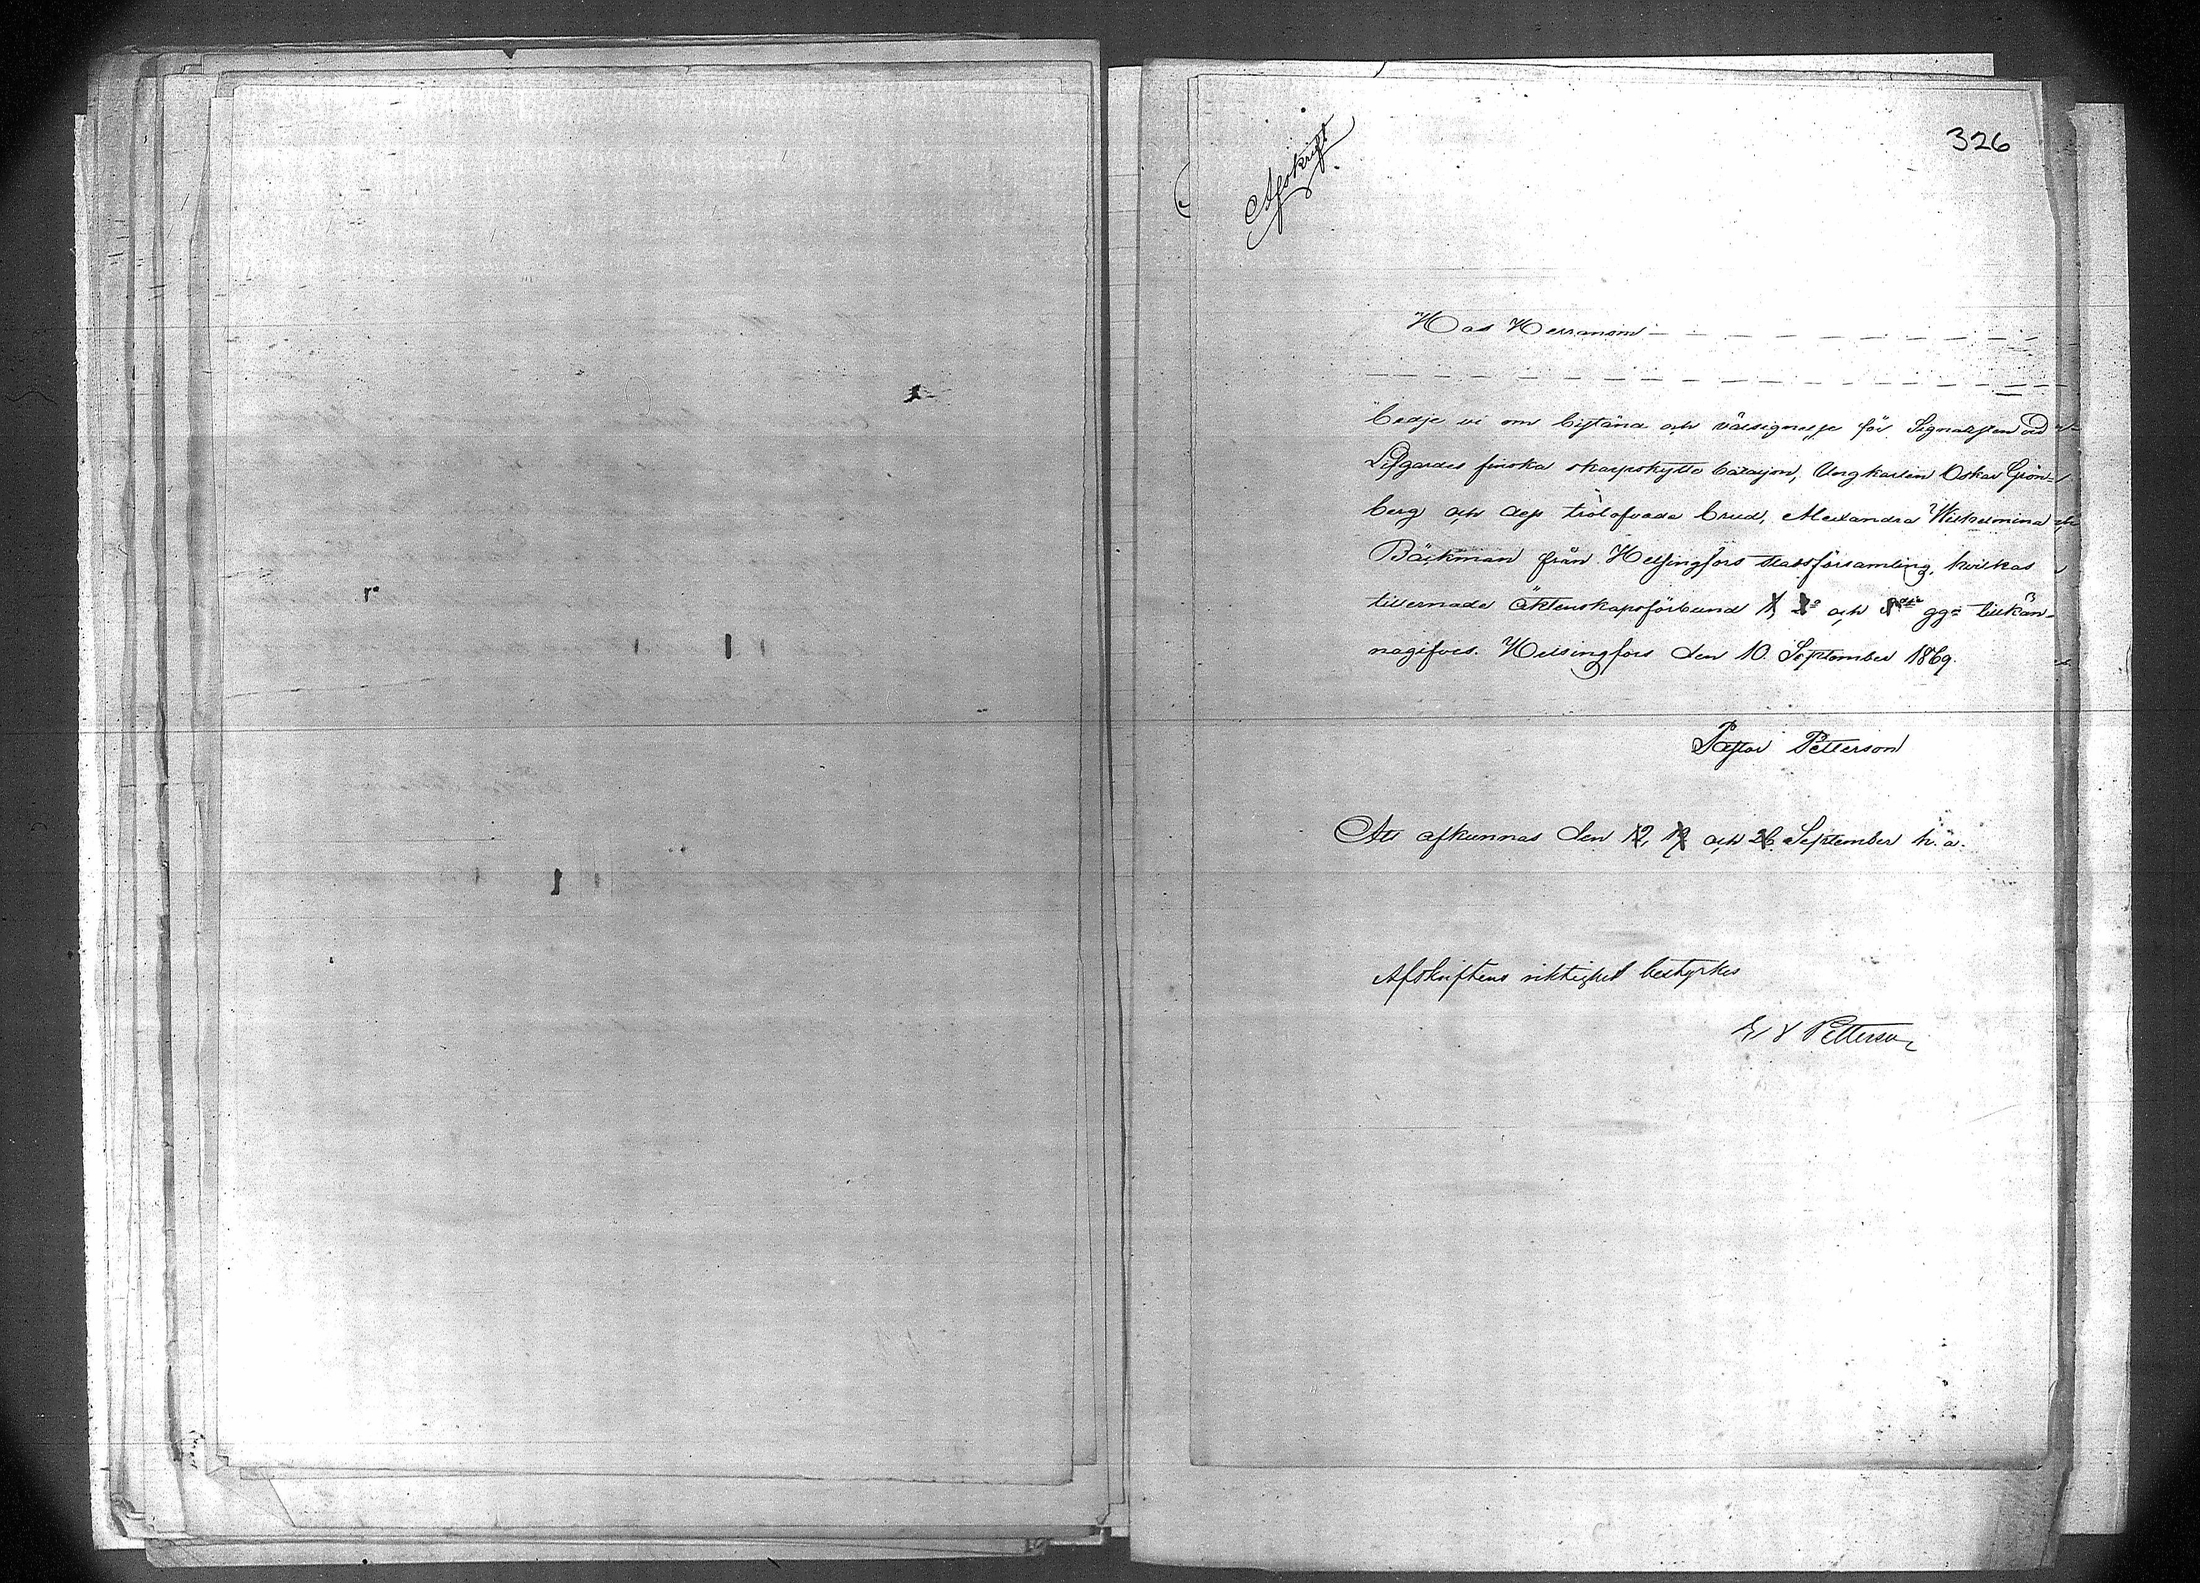 326
Afskrift
Hos Herranom
bedje vi om bistånd och välsignelse för Signalisten vid
Lifgardes finska skarpskytte bataljon, Ungkarlen Oskar Grön-
berg och dess trolofvade brud, Alexandra Wilhelmina
Bäckman från Helsingfors stadsförsamling, hvilkas
tillernade äktenskapsförbund 1, 2 och 3dje gg: tillkän-
nagifves. Helsingfors den 10. September 1869.
Pastor Petterson
Att afkunnas den 12, 19 och 26 September h. å.
Afskriftens riktighet bestyrkes
Petterson